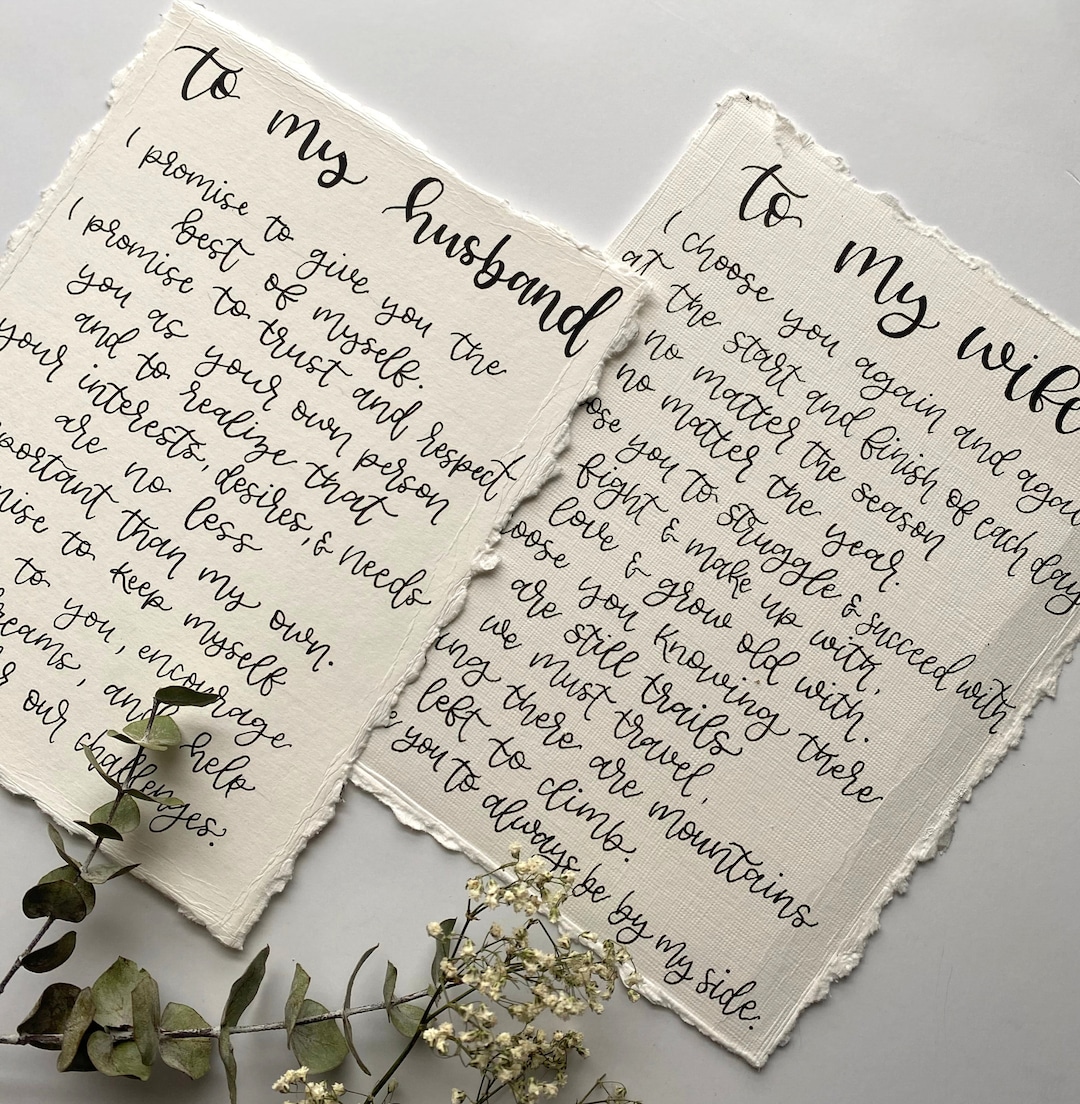 to my husband
I promise to give you the
best of myself.
I promise to trust and respect
you as your own person
and to realize that
your interests, desires, & needs
are no less
than my own.
to keep myself
to you, encourage
and help
our challenges.
to my wife
I choose you again and again
at the start and finish of each day
no matter the season
no matter the year.
you to struggle & succeed with,
fight & make up with,
love & grow old with.
you knowing there
are still trails
we must travel,
there are mountains
left to climb.
you to always be by my side.